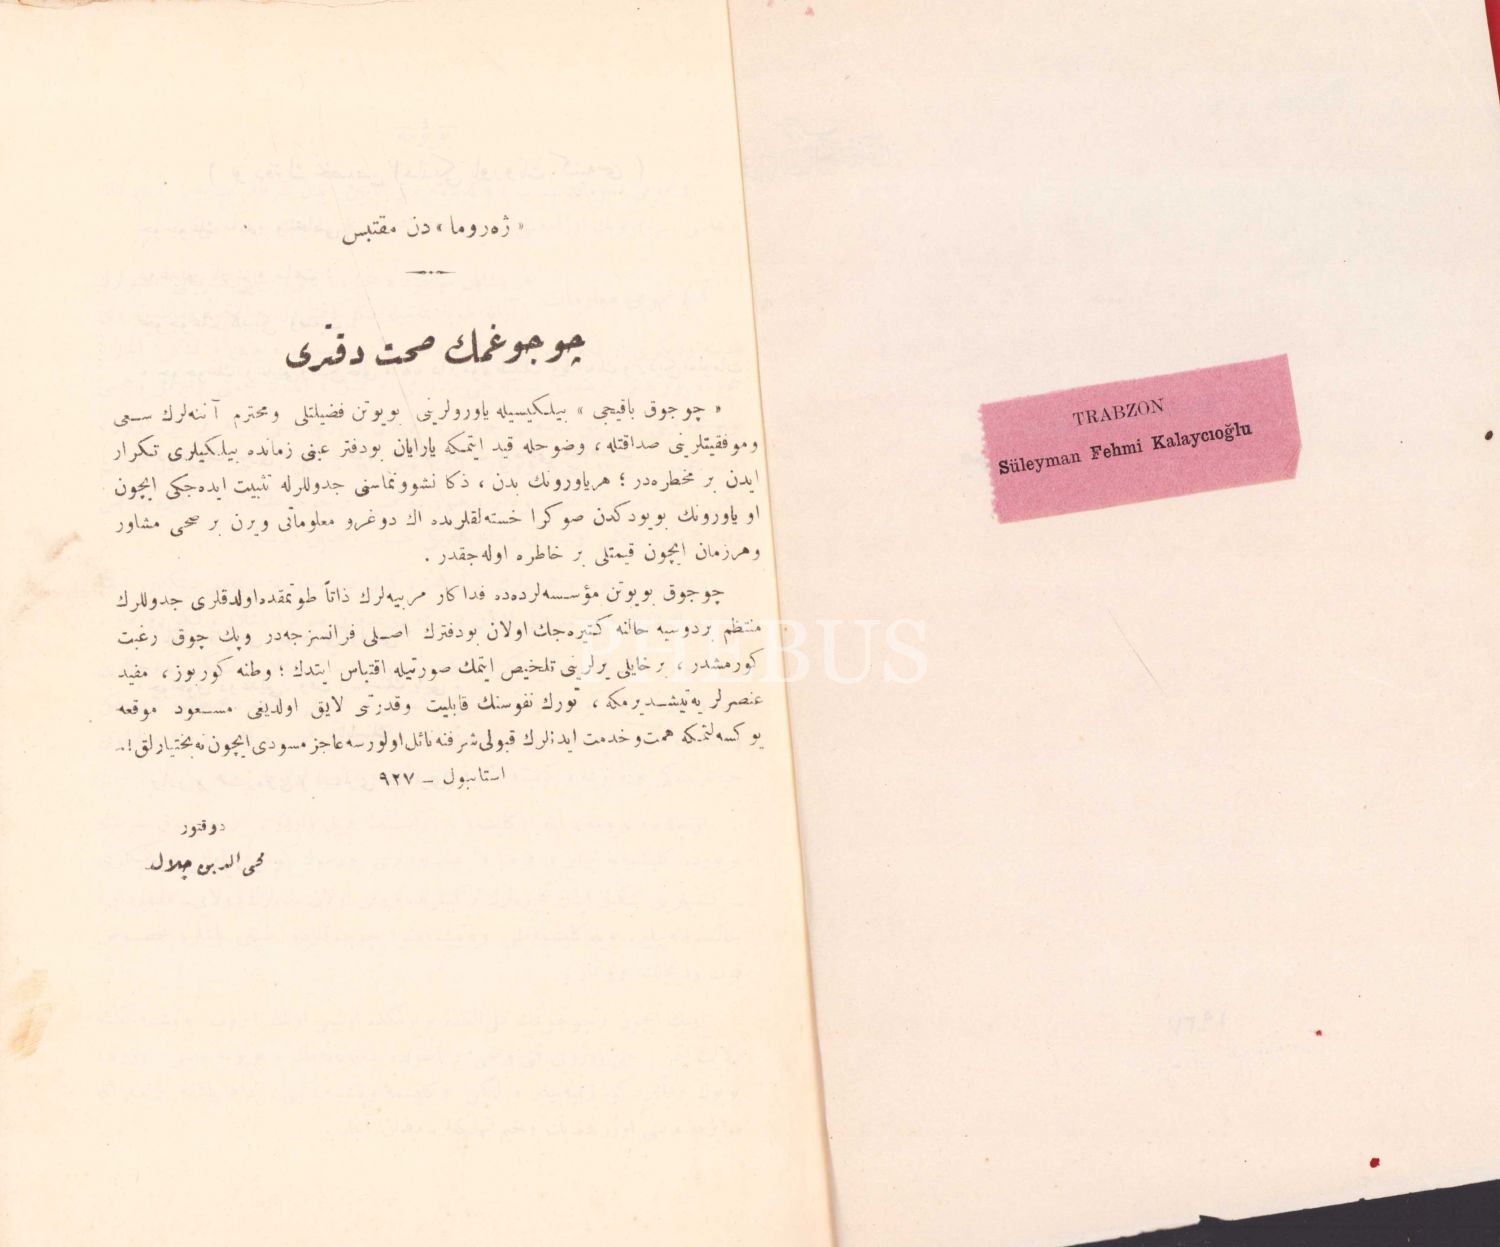 « ژه روما » دن مقتبس
چوجوغمك صحت دفترى
« چوجوق باقيجى » بيلكيسيله ياورولرينى بويوتن فضيلتلى ومحترم آننه‌لرك سعى
وموفقيتلرينى صداقتله ، وضوحله قيد ايتمكه يارايان بودفتر عينى زمانده بيلكيلرى تكرار
ايدن بر مخطره‌در ؛ هرياورونك بدن ، ذكا نشوونماسنى جدوللرله تثبيت ايده‌جكى ايچون
او ياورونك بويودكدن صوكرا خسته‌لقلرنده اك دوغرو معلوماتى ويرن بر صحى مشاور
وهرزمان ايچون قيمتلى بر خاطره اوله‌جقدر .
چوجوق بويوتن مؤسسه‌لرده‌ده فداكار مربيه‌لرك ذاتاً طوتمقده‌اولدقلرى جدوللرك
منتظم بردوسيه حالنه كتيره‌جك اولان بودفترك اصلى فرانسزجه‌در وپك چوق رغبت
كورمشدر ، برخايلى يرلرينى تلخيص ايتمك صورتيله اقتباس ايتدك ؛ وطنه كوربوز ، مفيد
عنصرلر يه‌تيشديرمكه ، تورك نفوسنك قابليت وقدرتى لايق اولديغى مسعود موقعه
يوكسه‌لتمكه همت‌وخدمت ايدنلرك قبولى‌شرفنه‌نائل‌اولورسه‌عاجز مسودى‌ايچون‌نه‌بختيارلق!..
استانبول – ٩٢٧
دوقتور
محى الدين جلال
TRABZON
Süleyman Fehmi Kalaycıoğlu
PHEBUS